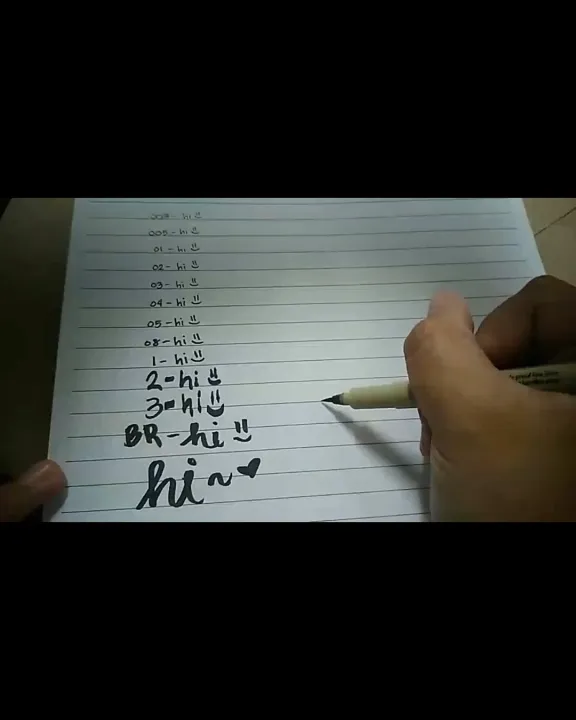 003 - hi
005 - hi
01 - hi
02 - hi
03 - hi
04 - hi
05 - hi
08 - hi
1 - hi
2 - hi
3 - hi
BR - hi
hi ~ ♥